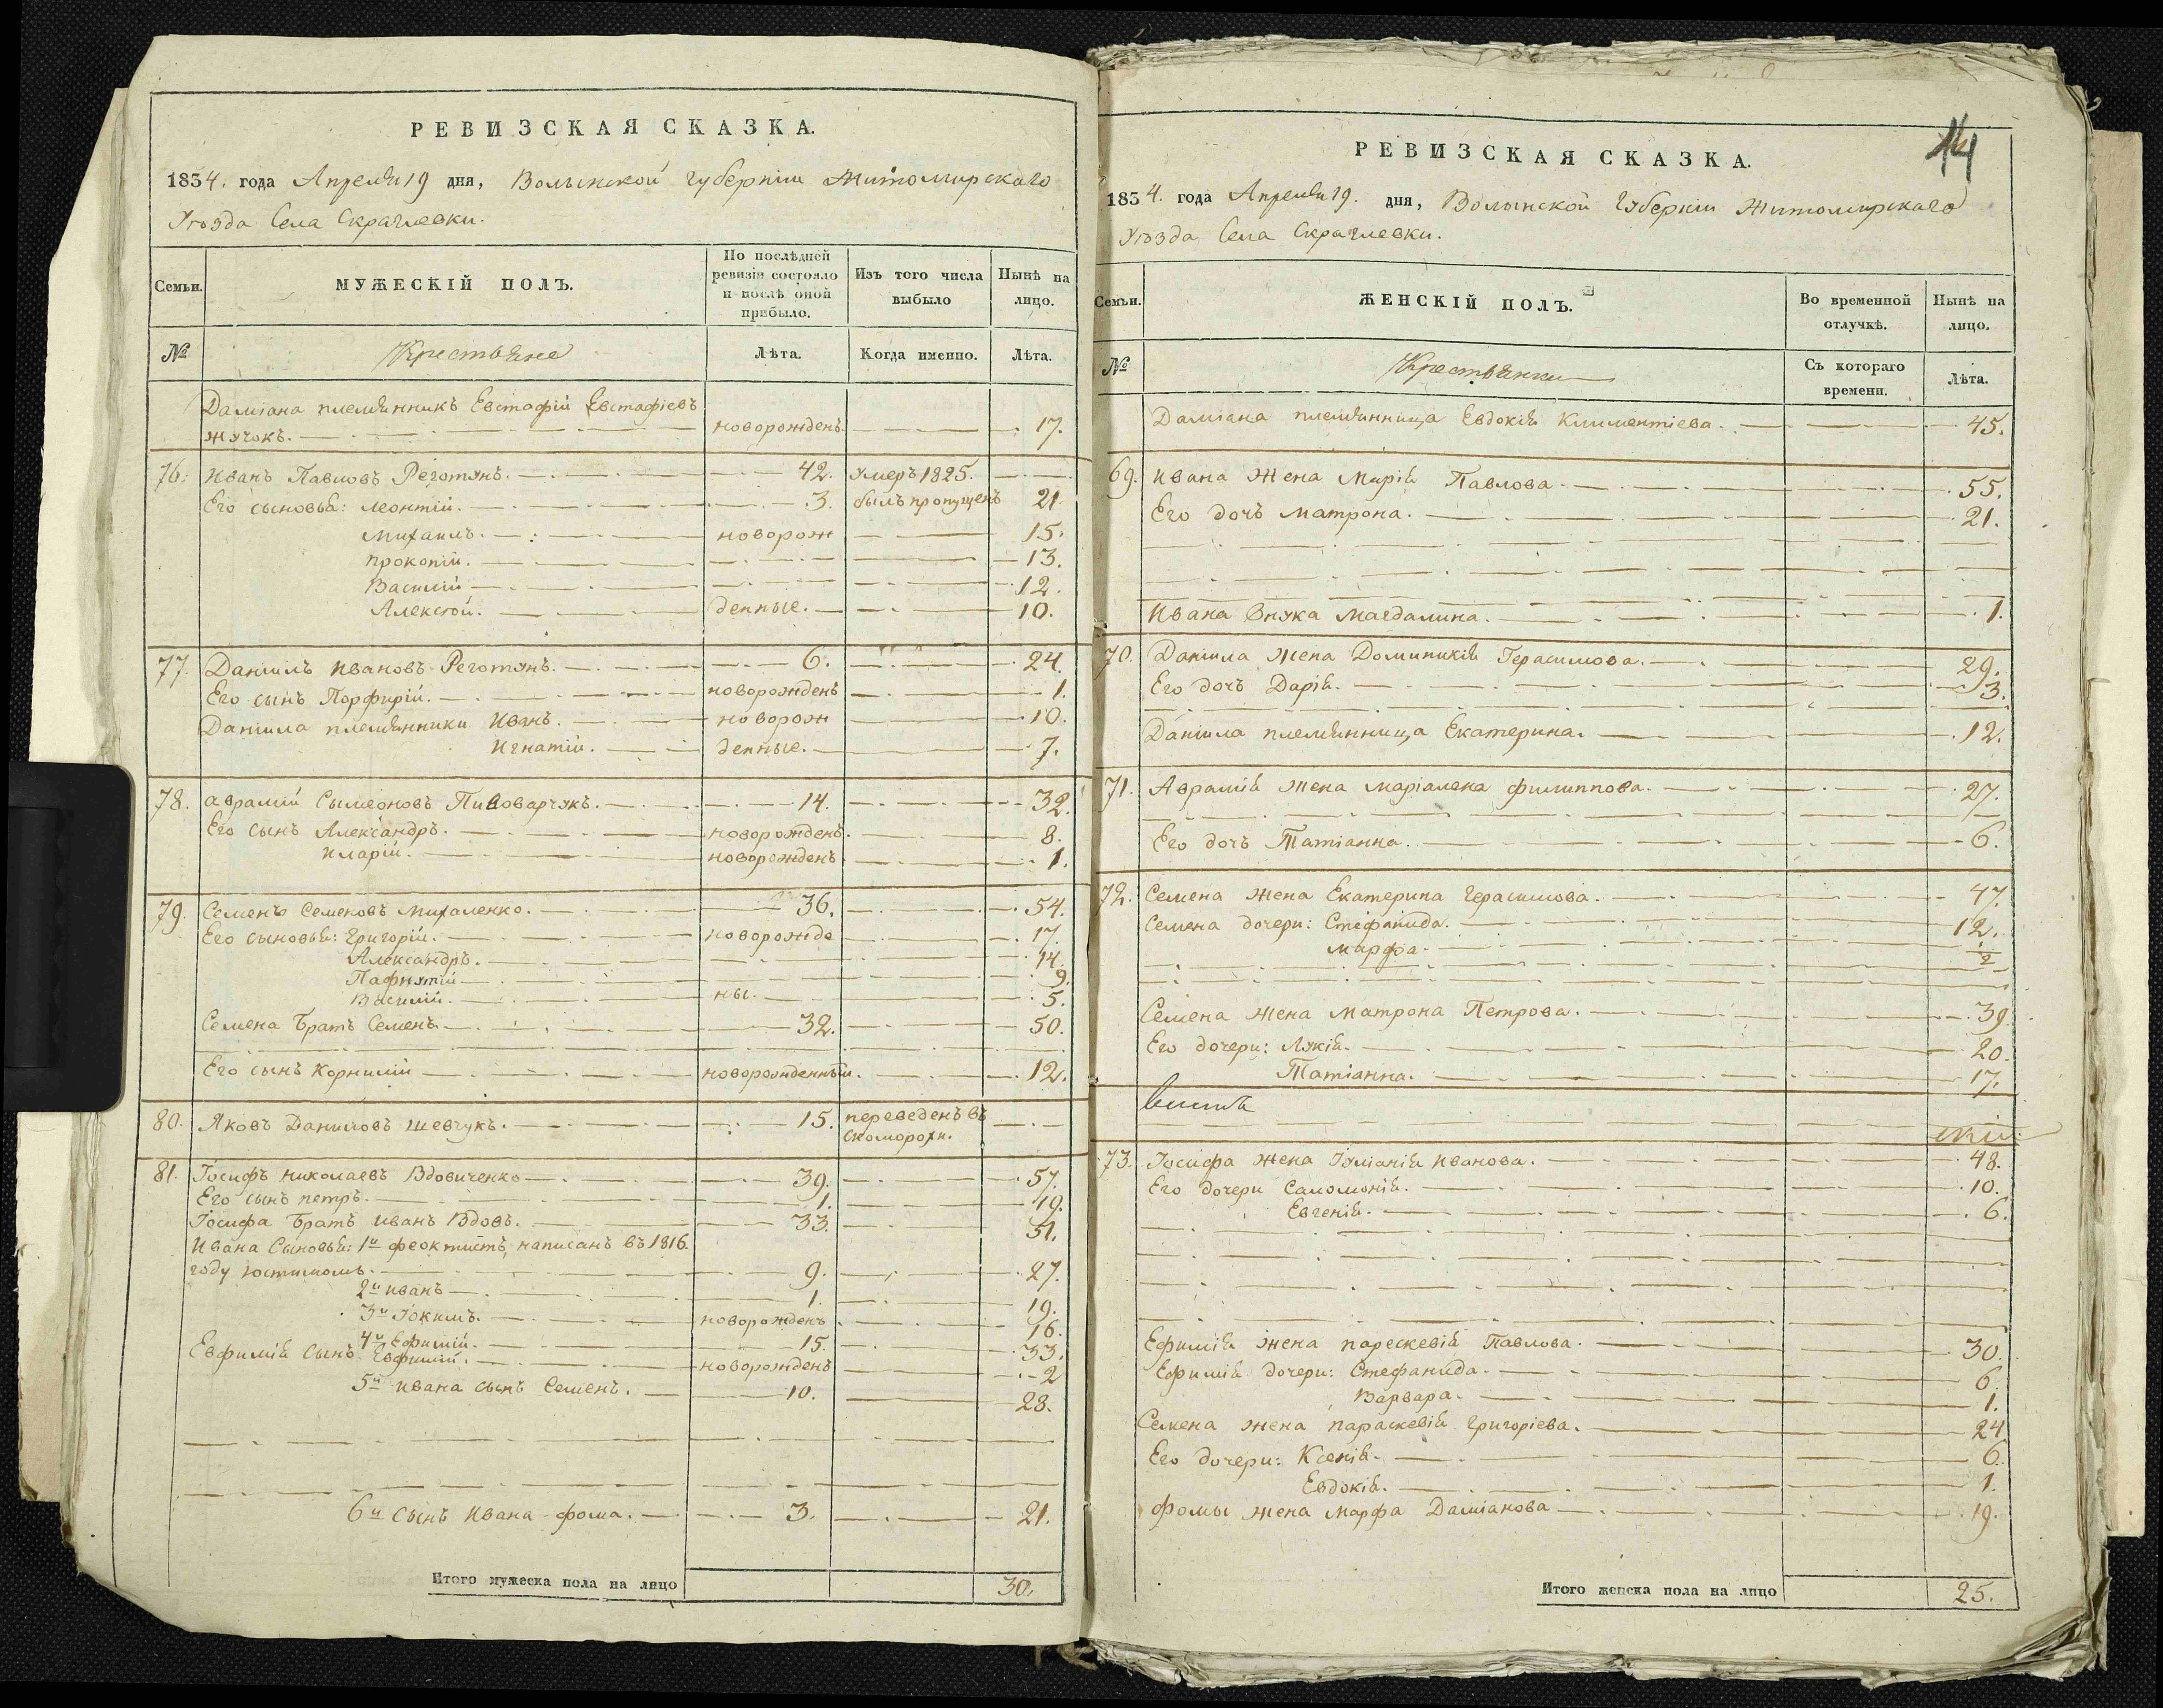 РЕВИЗСКАЯ СКАЗКА.
1834. года Апреля 19 дня, Волынской губернiи Житомирского
Уѣзда Села Скраглевки.
Семьи.
МУЖЕСКІЙ ПОЛЪ.
По послѣдней ревизіи состояло и послѣ оной прибыло.
Изъ того числа выбыло
Нынѣ на лицо.
№
Крестьяне
Лѣта.
Когда именно.
Лѣта.
Даміана племянникъ Евстафій Евстафіевъ
жучокъ. новорожденъ. 17.
76. Иванъ Павловъ Реготунъ. 42. умеръ 1825.
Его сыновья: Леонтій. 3. былъ пропущенъ 21.
Михаилъ. новорож 15.
Прокопій. 13.
Василій 12.
Алексѣй. денные. 10.
77. Даніилъ Ивановъ Реготунъ. 6. 24.
Его сынъ Порфирій. новорожденъ 1.
Даніила племянники Иванъ. новорож 10.
Игнатій. денные. 7.
78. Аврамій Сымеоновъ Пивоварчукъ. 14. 32.
Его сынъ Александръ. новорожденъ. 8.
Иларій. новорожденъ 1.
79. Семенъ Семеновъ Михаленко. 36. 54.
Его сыновья: Григорій. новорожде 17.
Александръ. 14.
Пафнутій 9.
Василій. ны. 5.
Семена Братъ Семенъ. 32. 50.
Его сынъ Корнилій новорожденный. 12.
80. Яковъ Даниловъ Шевчукъ. 15. переведенъ въ
Скоморохи.
81. Іосифъ Николаевъ Вдовиченко 39. 57.
Его сынъ Петръ. 1. 19.
Іосифа Братъ Иванъ Вдовъ. 33. 51.
Ивана Сыновья: 1й Феоктистъ, написанъ въ 1816
году Юстиномъ. 9. 27.
2й Иванъ 1. 19.
3й Іокимъ. новорожденъ 16.
4й Ефимій. 15. 33.
Евфимія сынъ Евфимій. новорожденъ 2
5й Ивана сынъ Семенъ. 10. 28.
6й сынъ Ивана Фома. 3. 21.
Итого мужеска пола на лицо 30.
14
РЕВИЗСКАЯ СКАЗКА.
1834. года Апреля 19. дня, Волынской Губерніи Житомирскаго
Уѣзда Села Скраглевки.
Семьи.
ЖЕНСКІЙ ПОЛЪ.
Во временной отлучкѣ.
Нынѣ на лицо.
№
Крестьянки
Съ котораго времени.
Лѣта.
Даміана племянница Евдокія Климентіева. 45.
69. Ивана Жена Марія Павлова. 55.
Его дочь Матрона. 21.
Ивана Внука Магдалина. 1.
70. Даніила Жена Доминикія Герасимова. 29.
Его дочь Дарія. 3.
Даніила племянница Екатерина. 12.
71. Аврамія Жена Маріамна Филиппова. 27.
Его дочь Татіанна. 6.
72. Семена жена Екатерина Герасимова. 47.
Семена дочери: Стефанида. 12.
Марфа. 1/2
Семена жена Матрона Петрова. 39.
Его дочери: Лукія. 20.
Татіанна. 17.
73. Іосифа жена Іуліанія Иванова. 48.
Его дочери Саломонія. 10.
Евгенія. 6.
Ефимія жена Параскевія Павлова. 30.
Ефимія дочери: Стефанида. 6.
Варвара. 1.
Семена жена Параскевія Григоріева. 24
Его дочери: Ксенія. 6.
Евдокія. 1.
Фомы жена Марфа Даміанова 19.
Итого женска пола на лицо 25.